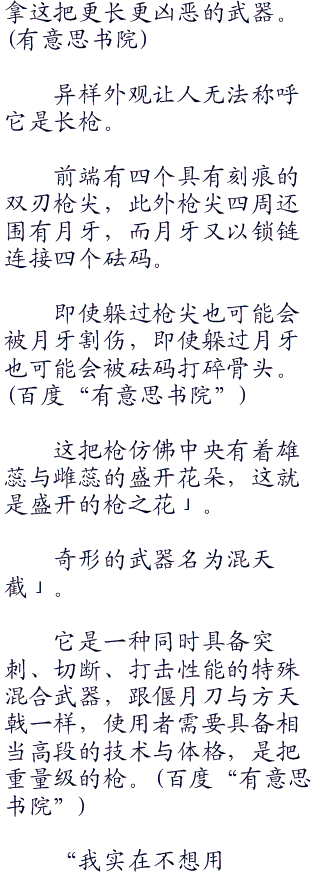 拿这把更长更凶恶的武器。
(有意思书院)
异样外观让人无法称呼
它是长枪。
前端有四个具有刻痕的
双刃枪尖，此外枪尖四周还
围有月牙，而月牙又以锁链
连接四个砝码。
即使躲过枪尖也可能会
被月牙割伤，即使躲过月牙
也可能会被砝码打碎骨头。
(百度“有意思书院”)
这把枪仿佛中央有着雄
蕊与雌蕊的盛开花朵，这就
是盛开的枪之花」。
奇形的武器名为混天
截」。
它是一种同时具备突
刺、切断、打击性能的特殊
混合武器，跟偃月刀与方天
戟一样，使用者需要具备相
当高段的技术与体格，是把
重量级的枪。(百度“有意思
书院”)
“我实在不想用